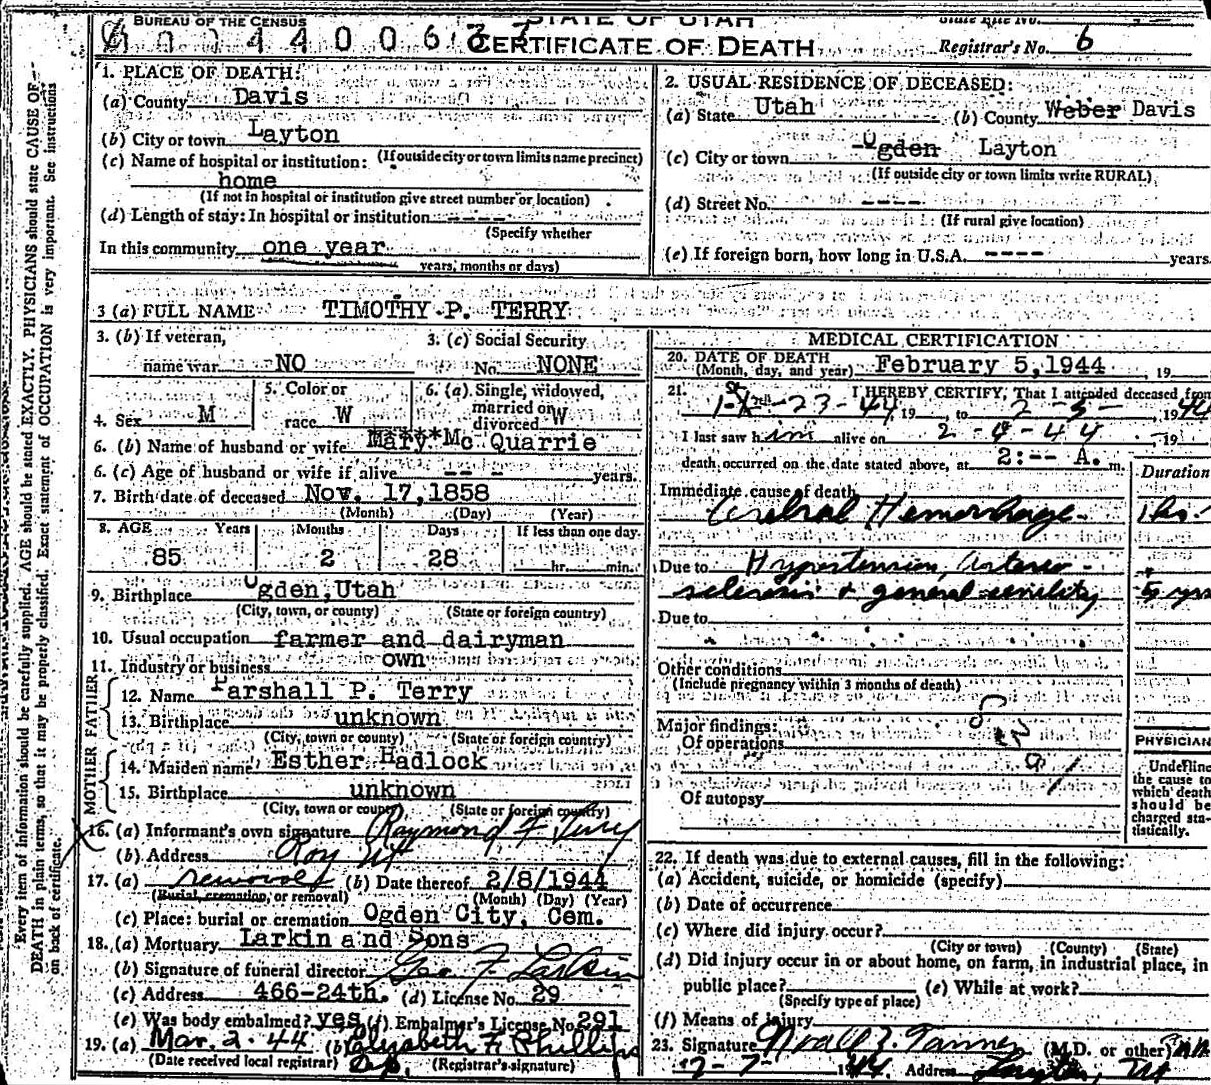 BUREAU OF THE CENSUS
STATE OF UTAH
CERTIFICATE OF DEATH
State File No.
Registrar's No. 6
1. PLACE OF DEATH:
(a) County Davis
(b) City or town Layton
(If outside city or town limits name precinct)
(c) Name of hospital or institution:
home
(If not in hospital or institution give street number or location)
(d) Length of stay: In hospital or institution ----
(Specify whether
In this community one year
years, months or days)
2. USUAL RESIDENCE OF DECEASED:
(a) State Utah (b) County Weber Davis
(c) City or town Ogden Layton
(If outside city or town limits write RURAL)
(d) Street No. ----
(If rural give location)
(e) If foreign born, how long in U.S.A. ---- years.
3 (a) FULL NAME TIMOTHY P. TERRY
3. (b) If veteran,
name war NO
3. (c) Social Security
No. NONE
4. Sex M
5. Color or
race W
6. (a) Single, widowed,
married or
divorced W
6. (b) Name of husband or wife Mary Mc Quarrie
6. (c) Age of husband or wife if alive --- years.
7. Birth date of deceased Nov. 17,1858
(Month) (Day) (Year)
8. AGE Years Months Days If less than one day
85 2 28 hr. min.
9. Birthplace Ogden,Utah
(City, town, or county) (State or foreign country)
10. Usual occupation farmer and dairyman
11. Industry or business own
FATHER
12. Name Parshall P. Terry
13. Birthplace unknown
(City, town or county) (State or foreign country)
MOTHER
14. Maiden name Esther Hadlock
15. Birthplace unknown
(City, town or county) (State or foreign country)
16. (a) Informant's own signature Raymond F Terry
(b) Address Roy Ut
17. (a) removal (b) Date thereof 2/8/1944
(Burial, cremation, or removal) (Month) (Day) (Year)
(c) Place: burial or cremation Ogden City, Cem.
18. (a) Mortuary Larkin and Sons
(b) Signature of funeral director Geo F Larkin
(c) Address 466-24th. (d) License No. 29
(e) Was body embalmed? yes (f) Embalmer's License No. 291
19. (a) Mar. 2. 44 (b) Elizabeth F. Phillips
(Date received local registrar) Dp. (Registrar's signature)
MEDICAL CERTIFICATION
20. DATE OF DEATH
(Month, day, and year) February 5,1944, 19
21. I HEREBY CERTIFY, That I attended deceased from
23-44 19 , to 2-5- 1944
I last saw him alive on 2-4-44 19
death occurred on the date stated above, at 2:-- A. m.
Duration
Immediate cause of death
Cerebral Hemorrhage
Due to Hypertension, Arterio-
sclerosis + general senility 5 yrs
Due to
Other conditions
(Include pregnancy within 3 months of death)
Major findings:
Of operations
Of autopsy
PHYSICIAN
Underline
the cause to
which death
should be
charged sta-
tistically.
22. If death was due to external causes, fill in the following:
(a) Accident, suicide, or homicide (specify)
(b) Date of occurrence
(c) Where did injury occur?
(City or town) (County) (State)
(d) Did injury occur in or about home, on farm, in industrial place, in
public place? (e) While at work?
(Specify type of place)
(f) Means of injury
23. Signature Noall Z. Tanner (M.D. or other) MD
2-7- 1944 Address Layton, Ut
Every item of information should be carefully supplied. AGE should be stated EXACTLY. PHYSICIANS should state CAUSE OF
DEATH in plain terms, so that it may be properly classified. Exact statement of OCCUPATION is very important. See instructions
on back of certificate.